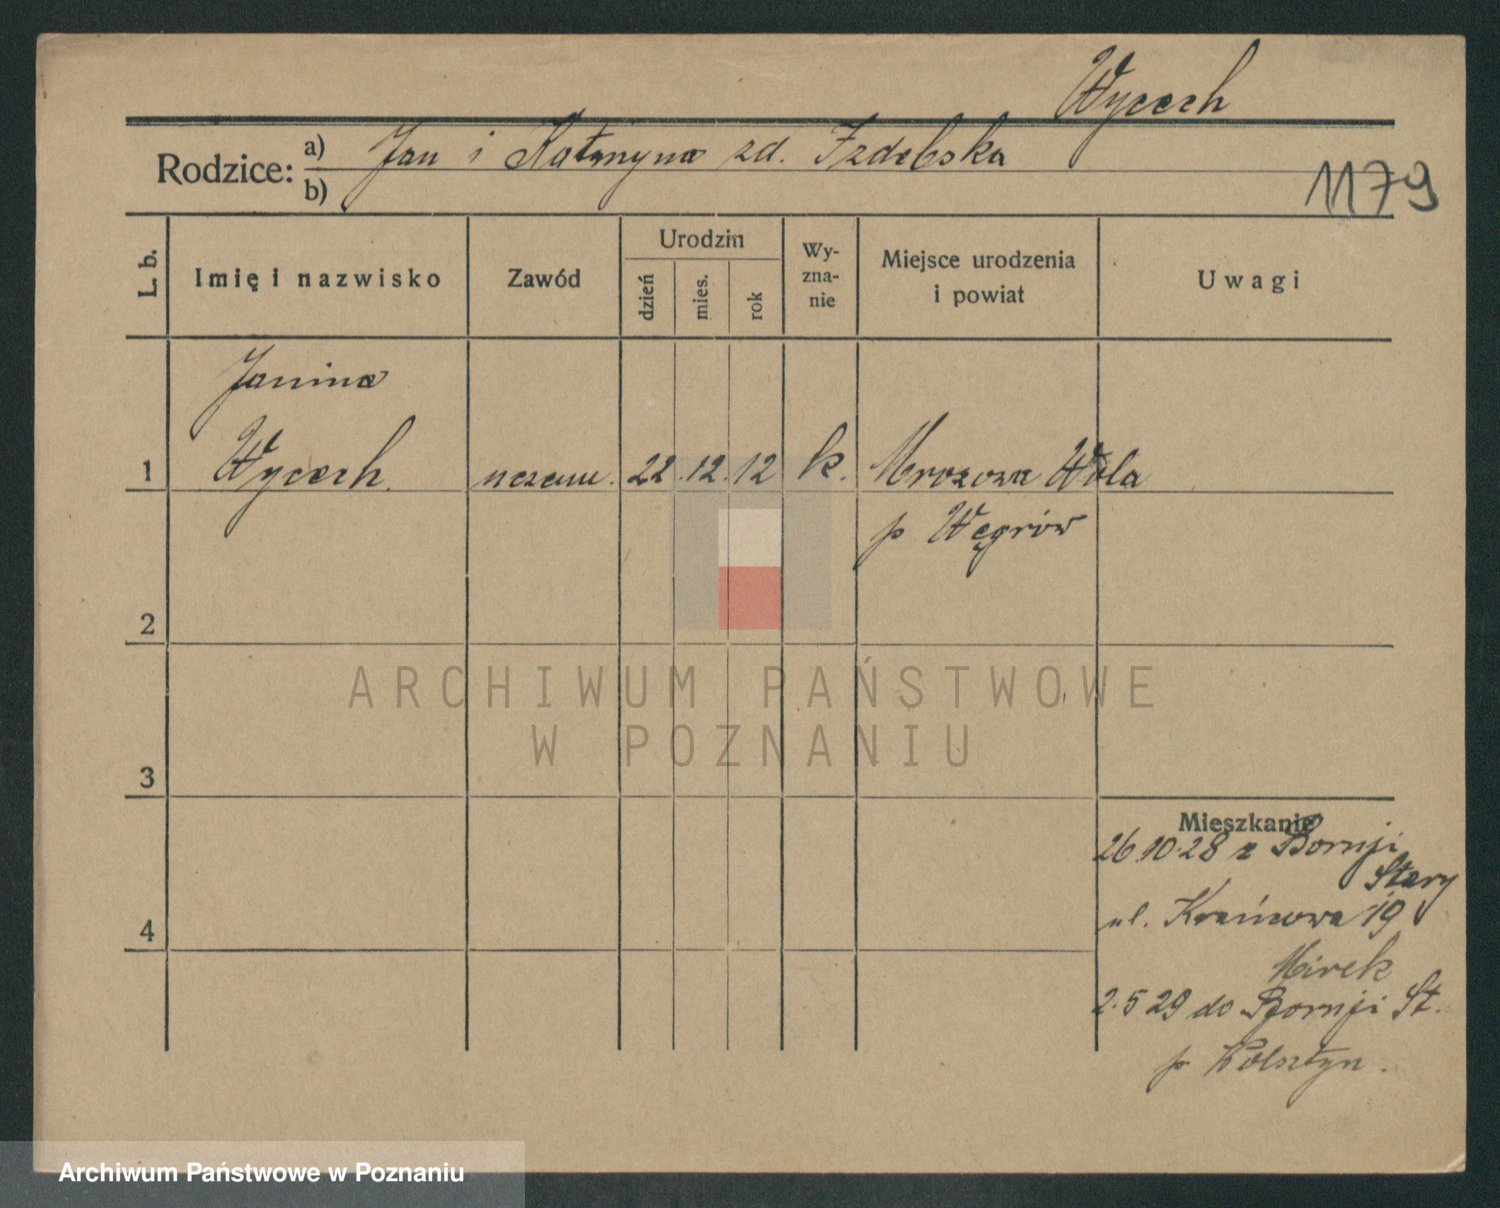 Wycech
Rodzice: a) Jan i Katarzyna zd. Izdebska
b)
1179
L. b. Imię i nazwisko Zawód Urodzin dzień mies. rok Wy-zna-nie Miejsce urodzenia i powiat Uwagi
Janina
1 Wycech uczenn. 22. 12. 12 k. Mrozowa Wola
p Węgrów
2
3
4
Mieszkanie
26.10.28 z Boruji
Stary
ul. Krańcowa 19
Mirek
2.5 29 do Boruji St.
p. Wolsztyn.
ARCHIWUM PAŃSTWOWE
W POZNANIU
Archiwum Państwowe w Poznaniu